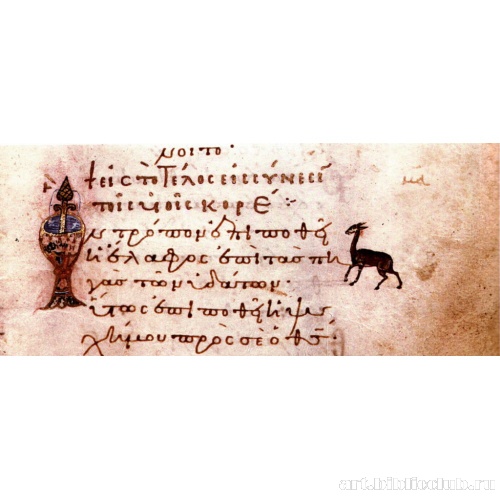 μοι το·
εἰς τὸ τέλος εἰς σύνεσι
τοῖς υἱοῖς κορέ:
ν τρόπον ἐπιποθεῖ
ἡ ἔλαφος ἐπὶ τὰς πη
γὰς τῶν ὑδάτων·
ὕτως ἐπιποθεῖ ἡ ψυ
χή μου πρὸς σὲ ὁ θς·
art.biblioclub.ru